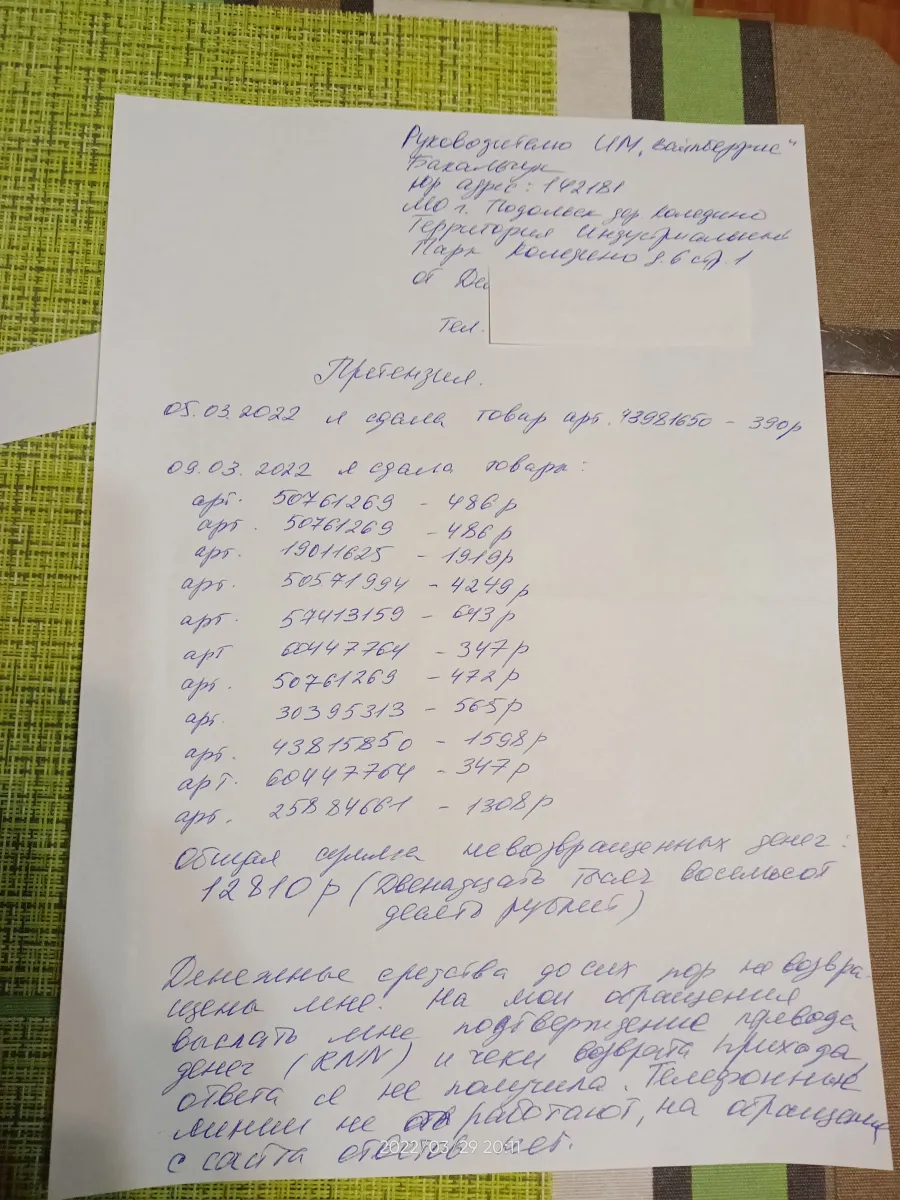 Руководителю ИМ „Вайлберрис"
Бакальчук
юр адрес: 142181
МО г. Подольск дер Коледино
Территория Индустриальный
Парк Коледино д.6 стр.1
от Де
Тел.
Претензия.
05.03.2022 я сдала товар арт. 43981650 - 390р
09.03.2022 я сдала товары:
арт. 50761269 - 486р
арт. 50761269 - 486р
арт. 19011625 - 1919р
арт. 50571994 - 4249р
арт. 57413159 - 643р
арт 60447764 - 347р
арт. 50761269 - 472р
арт. 30395313 - 565р
арт. 43815850 - 1598р
арт. 60447764 - 347р
арт. 25884661 - 1308р
Общая сумма невозвращенных денег:
12810р (Двенадцать тысяч восемьсот
десять рублей)
Денежные средства до сих пор не возвра-
щены мне. На мои обращения
выслать мне подтверждение перевода
денег (RNN) и чеки возврата прихода
ответа я не получила. Телефонные
линии не работают, на обращения
с сайта ответов нет.
2022/03/29 20:11